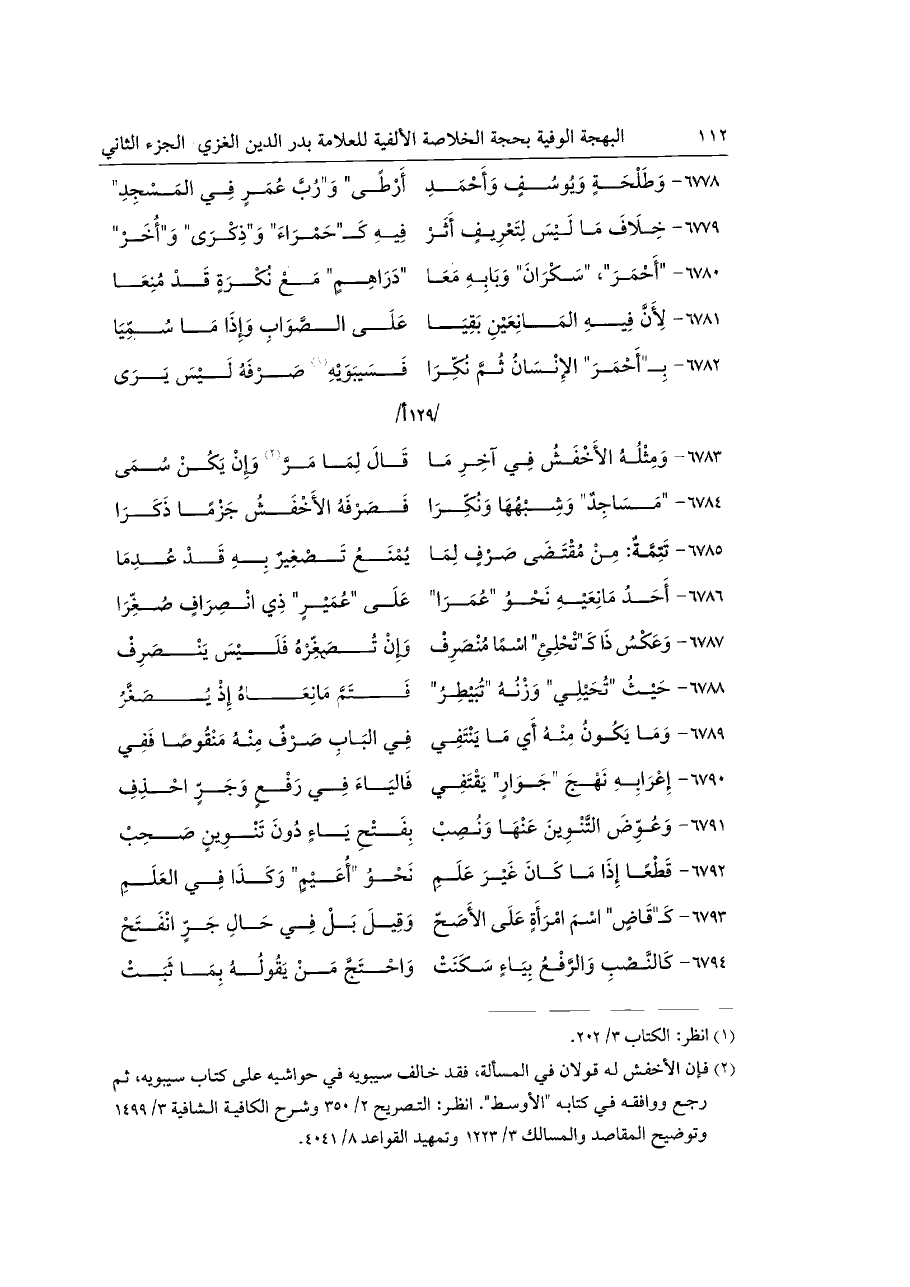 ١١٢ البهجة الوفية بحجة الخلاصة الألفية للعلامة بدر الدين الغزي الجزء الثاني
٦٧٧٨- وَطَلْحَـةٍ وَيُوسُـفٍ وَأَحْمَـدِ أَرْطًـى" وَ"رُبَّ عُمَـرٍ فِـي المَـسْجِدِ"
٦٧٧٩- خِـلَافَ مَـا لَـيْسَ لِتَعْرِيـفٍ أَثَـرْ فِيـهِ كَــ"حَمْـرَاءَ" وَ"ذِكْـرَى" وَ"أُخَـرْ"
٦٧٨٠- "أَحْمَـرَ"، "سَـكْرَانَ" وَبَابِـهِ مَعَـا "دَرَاهِـمٍ" مَـعْ نُكْـرَةٍ قَـدْ مُنِعَـا
٦٧٨١- لِأَنَّ فِيـهِ المَـانِعَيْنِ بَقِيَـا عَلَـى الـصَّوَابِ وَإِذَا مَـا سُـمِّيَا
٦٧٨٢- بِـ"أَحْمَـرَ" الإِنْـسَانُ ثُـمَّ نُكِّـرَا فَـسِيبَوَيْهِ(١) صَـرْفَهُ لَـيْسَ يَـرَى
/١٢٩أ/
٦٧٨٣- وَمِثْلُـهُ الأَخْفَـشُ فِـي آخِـرِ مَـا قَـالَ لِمَـا مَـرَّ(٢) وَإِنْ يَكُـنْ سُـمَى
٦٧٨٤- "مَـسَاجِدٌ" وَشِـبْهُهَا وَنُكِّـرَا فَـصَرْفَهُ الأَخْفَـشُ جَزْمًـا ذَكَـرَا
٦٧٨٥- تَتِمَّـةٌ: مِـنْ مُقْتَـضَى صَـرْفٍ لِمَـا يُمْنَـعُ تَـصْغِيرٌ بِـهِ قَـدْ عُـدِمَا
٦٧٨٦- أَحَـدُ مَانِعَيْـهِ نَحْـوُ "عُمَـرَا" عَلَـى "عُمَيْـرٍ" ذِي انْـصِرَافٍ صُغِّـرَا
٦٧٨٧- وَعَكْـسُ ذَا كَـ"تُحْلِئٍ" اسْـمًا مُنْصَرِفْ وَإِنْ تُـصَغِّرْهُ فَلَـيْسَ يَنْـصَرِفْ
٦٧٨٨- حَيْـثُ "تُحَيْلِي" وَزْنُـهُ "تُبَيْطِـرُ" فَـتَمَّ مَانِعَـاهُ إِذْ يُـصَغَّرُ
٦٧٨٩- وَمَـا يَكُـونُ مِنْـهُ أَي مَـا يَنْتَفِـي فِـي البَـابِ صَرْفٌ مِنْـهُ مَنْقُوصًـا فَفِـي
٦٧٩٠- إِعْرَابِـهِ نَهْـجَ "جَـوَارٍ" يَقْتَفِـي فَاليَـاءَ فِـي رَفْـعٍ وَجَـرٍّ احْـذِفِ
٦٧٩١- وَعُـوِّضَ التَّنْـوِينَ عَنْهَـا وَنُصِبْ بِفَـتْحِ يَـاءٍ دُونَ تَنْـوِينٍ صَـحِبْ
٦٧٩٢- قَطْعًـا إِذَا مَـا كَـانَ غَيْـرَ عَلَـمِ نَحْـوُ "أُعَيْـمٍ" وَكَـذَا فِـي العَلَـمِ
٦٧٩٣- كَـ"قَاضٍ" اسْـمَ امْرَأَةٍ عَلَى الأَصَـحّ وَقِيـلَ بَـلْ فِـي حَـالِ جَـرٍّ انْفَـتَحْ
٦٧٩٤- كَالنَّـصْبِ وَالرَّفْـعُ بِيَـاءٍ سَـكَنَتْ وَاحْـتَجَّ مَـنْ يَقُولُـهُ بِمَـا ثَبَـتْ
(١) انظر: الكتاب ٣/ ٢٠٢.
(٢) فإن الأخفش له قولان في المسألة، فقد خالف سيبويه في حواشيه على كتاب سيبويه، ثم
رجع ووافقه في كتابه "الأوسط". انظر: التصريح ٢/ ٣٥٠ وشرح الكافية الشافية ٣/ ١٤٩٩
وتوضيح المقاصد والمسالك ٣/ ١٢٢٣ وتمهيد القواعد ٨/ ٤٠٤١.